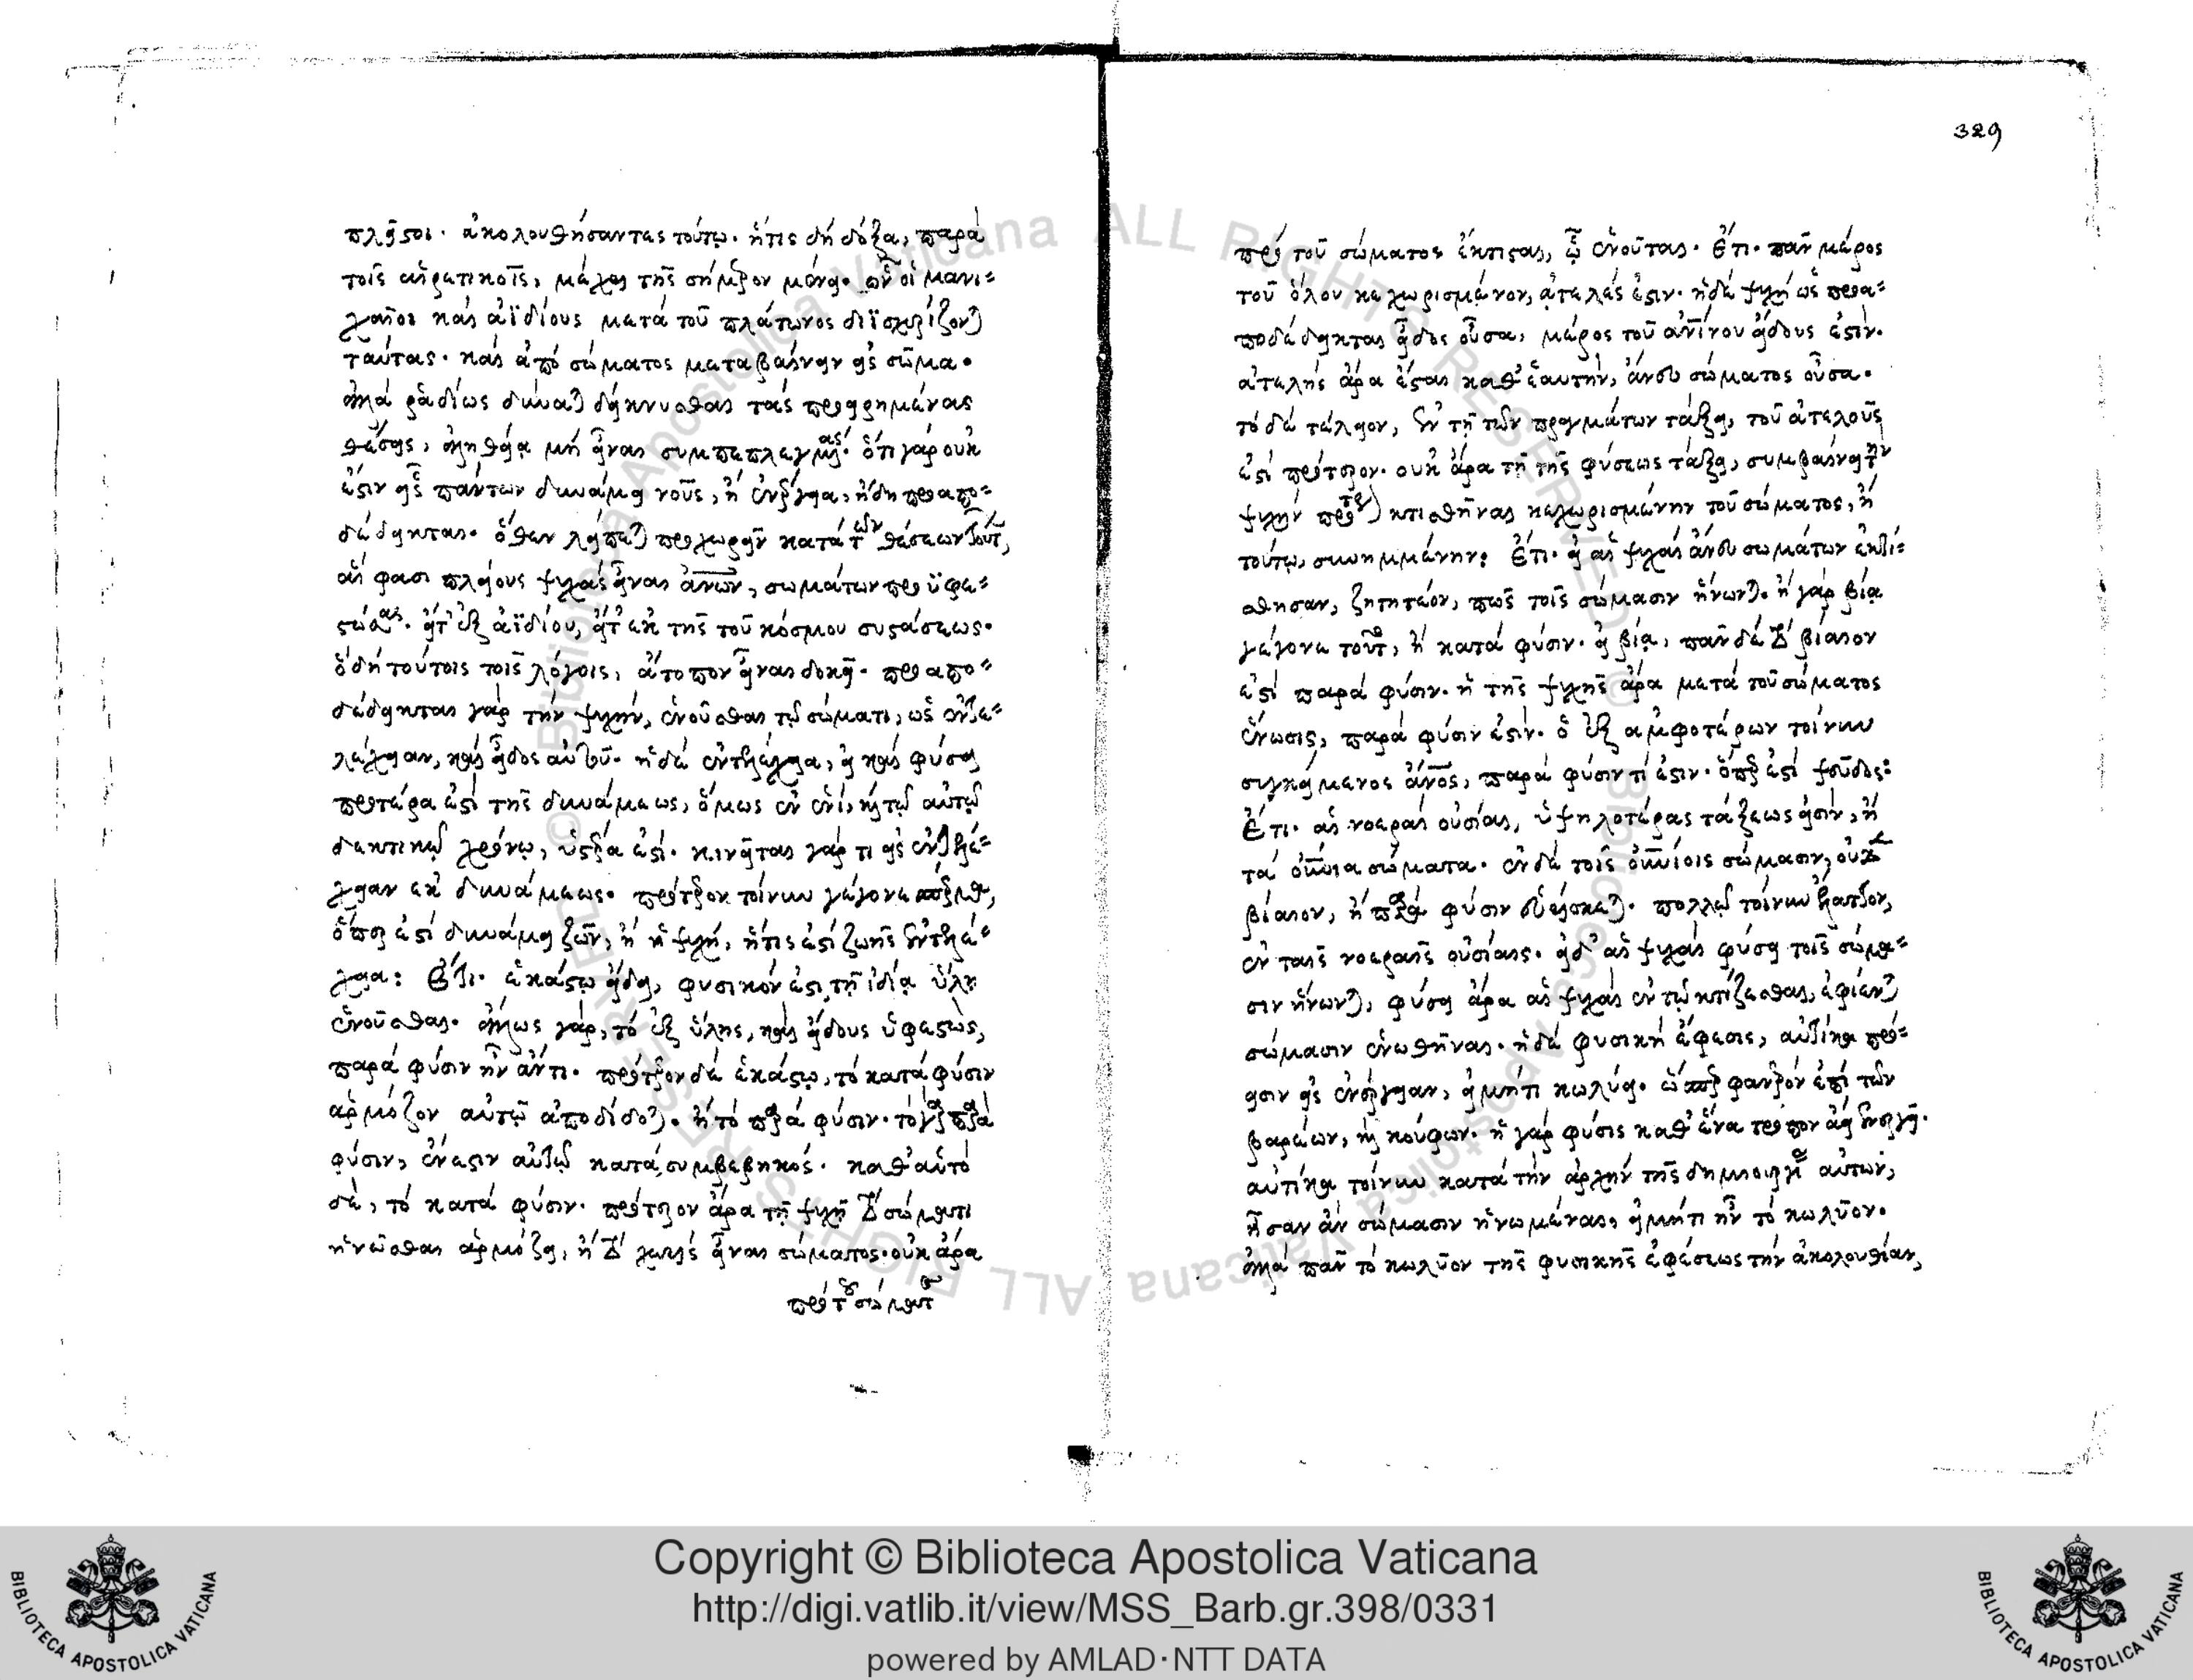 πλεῖστοι. ἀκολουθήσαντες τούτῳ. ἥτις δὴ δόξα, παρὰ
τοῖς αἱρετικοῖς, μέχρι τῆς σήμερον μένει. ὧν οἱ μανι=
χαῖοι καὶ ἀϊδίους μετὰ τοῦ πλάτωνος διϊσχυρίζονται
ταύτας. καὶ ἀπὸ σώματος μεταβαίνειν εἰς σῶμα.
ἀλλὰ ῥᾳδίως δύναται δείκνυσθαι τὰς προειρημένας
θέσεις, ἀληθείᾳ μὴ εἶναι συμπεπλεγμένας. ὅτι γὰρ οὐκ
ἔστιν εἷς πάντων δυνάμει νοῦς, ἢ ἐνέργεια, ἤδη προαπο=
δέδεικται. ὅθεν λείπεται προχωρεῖν κατὰ τῶν θέσεων τούτων,
αἵ φασι πλείους ψυχὰς εἶναι ἀνων, σωμάτων προϋφε=
στώσας. εἴτ' ἐξ ἀϊδίου, εἴτ' ἐκ τῆς τοῦ κόσμου συστάσεως.
ὃ δὴ τούτοις τοῖς λόγοις, ἄτοπον εἶναι δοκεῖ. προαπο=
δέδεικται γὰρ τὴν ψυχὴν, ἑνοῦσθαι τῷ σώματι, ὡς ἐντε=
λέχειαν, καὶ εἶδος αὐτοῦ. ἡ δὲ ἐντελέχεια, εἰ καὶ φύσει
προτέρα ἐστὶ τῆς δυνάμεως, ὅμως ἐν ἑνὶ, καὶ τῷ αὐτῷ
δεκτικῷ χρόνῳ, ὑστέρα ἐστί. κινεῖται γάρ τι εἰς ἐντελέ=
χειαν ἐκ δυνάμεως. πρότερον τοίνυν γέγονε
ὅπερ ἐστὶ δυνάμει ζῶν, ἢ ἡ ψυχὴ, ἥτις ἐστὶ ζωῆς ἐντελέ=
χεια: Ἔτι. ἑκάστῳ εἴδει, φυσικόν ἐστι τῇ ἰδίᾳ ὕλῃ
ἑνοῦσθαι. ἄλλως γὰρ, τὸ ἐξ ὕλης, καὶ εἴδους ὑφεστὼς,
παρὰ φύσιν ἦν ἄν τι. πρότερον δὲ ἑκάστῳ, τὸ κατὰ φύσιν
ἁρμόζον αὐτῷ ἀποδίδοται. ἢ τὸ παρὰ φύσιν. τὸ γὰρ παρὰ
φύσιν, ἔνεστιν αὐτῷ κατὰ συμβεβηκός. καθ' αὑτὸ
δὲ, τὸ κατὰ φύσιν. πρότερον ἄρα τῇ ψυχῇ τὸ σώματι
ἡνῶσθαι ἁρμόζει, ἢ τὸ χωρὶς εἶναι σώματος. οὐκ ἄρα
πρὸ τοῦ σώματος
329
πρὸ τοῦ σώματος ἔκτισται, ᾧ ἑνοῦται. Ἔτι. πᾶν μέρος
τοῦ ὅλου κεχωρισμένον, ἀτελές ἐστιν. ἡ δὲ ψυχὴ ὡς προα=
ποδέδεικται εἶδος οὖσα, μέρος τοῦ ἀνίνου εἴδους ἐστίν.
ἀτελὴς ἄρα ἔσται καθ' ἑαυτὴν, ἄνευ σώματος οὖσα.
τὸ δὲ τέλειον, ἐν τῇ τῶν πραγμάτων τάξει, τοῦ ἀτελοῦς
ἐστὶ πρότερον. οὐκ ἄρα τῇ τῆς φύσεως τάξει, συμβαίνει τὴν
ψυχὴν πρότερον κτισθῆναι κεχωρισμένην τοῦ σώματος, ἢ
τούτῳ, συνημμένην: Ἔτι. εἰ αἱ ψυχαὶ ἄνευ σωμάτων ἐκτί=
σθησαν, ζητητέον, πῶς τοῖς σώμασιν ἥνωνται. ἢ γὰρ βίᾳ
γέγονε τοῦτο, ἢ κατὰ φύσιν. εἰ βίᾳ, πᾶν δὲ τὸ βίαιον
ἐστὶ παρὰ φύσιν. ἡ τῆς ψυχῆς ἄρα μετὰ τοῦ σώματος
ἕνωσις, παρὰ φύσιν ἐστίν. ὁ ἐξ ἀμφοτέρων τοίνυν
συγκείμενος ἄνος, παρὰ φύσιν τί ἐστιν. ὅπερ ἐστὶ ψεῦδος:
Ἔτι. αἱ νοεραὶ οὐσίαι, ὑψηλοτέρας τάξεως εἰσὶν, ἢ
τὰ οὐνια σώματα. ἐν δὲ τοῖς οὐνίοις σώμασιν, οὐδὲν
βίαιον, ἢ παρὰ φύσιν εὑρίσκεται. πολλῷ τοίνυν ἔλαττον,
ἐν ταῖς νοεραῖς οὐσίαις. εἰ δ' αἱ ψυχαὶ φύσει τοῖς σώμα=
σιν ἥνωνται, φύσει ἄρα αἱ ψυχαὶ ἐν τῷ κτίζεσθαι, ἐφίενται
σώμασιν ἑνωθῆναι. ἡ δὲ φυσικὴ ἔφεσις, αὐτίκα πρό=
εισιν εἰς ἐνέργειαν, εἰ μή τι κωλύει. ὥσπερ φανερὸν ἐπὶ τῶν
βαρέων, καὶ κούφων. ἡ γὰρ φύσις καθ' ἕνα τρόπον ἀεὶ ἐνεργεῖ.
αὐτίκα τοίνυν κατὰ τὴν ἀρχὴν τῆς δημιουργίας αὐτῶν,
ἦσαν ἂν σώμασιν ἡνωμέναι, εἰ μή τι ἦν τὸ κωλῦον.
ἀλλὰ πᾶν τὸ κωλῦον τῆς φυσικῆς ἐφέσεως τὴν ἀκολουθίαν,
© Biblioteca Apostolica Vaticana ALL RIGHTS RESERVED
Copyright © Biblioteca Apostolica Vaticana
http://digi.vatlib.it/view/MSS_Barb.gr.398/0331
powered by AMLAD·NTT DATA
BIBLIOTECA APOSTOLICA VATICANA
BIBLIOTECA APOSTOLICA VATICANA